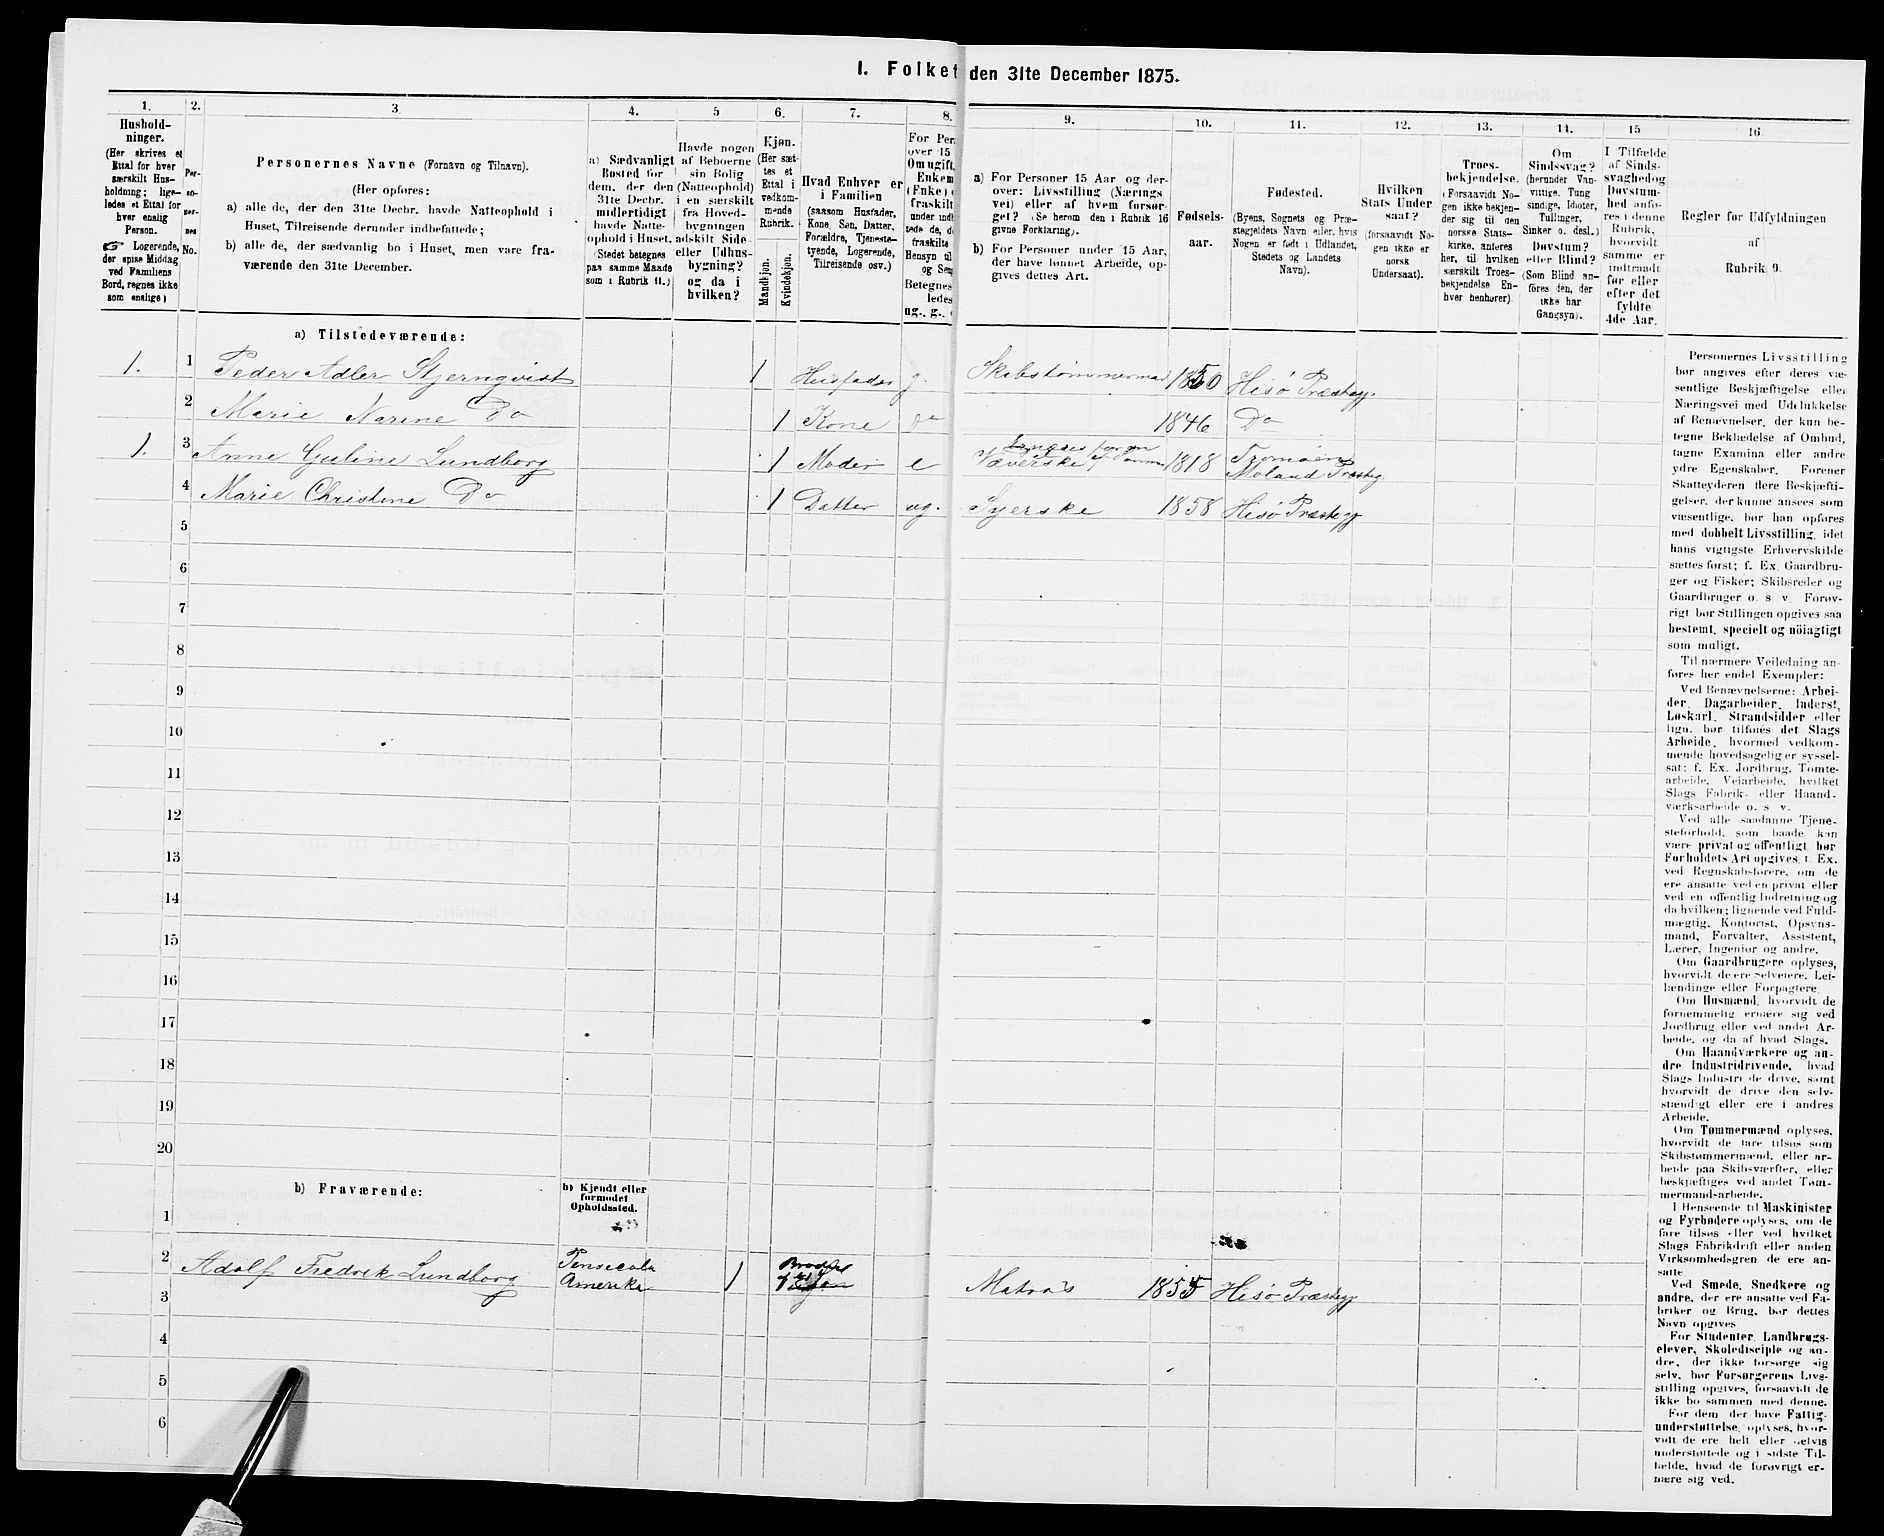 I. Folket den 31te December 1875.
1. 2. 3. 4. 5 6. 7. 8. 9. 10. 11. 12. 13. 14. 15 16
Hushold-
ninger.
(Her skrives et
Ettal for hver
særskilt Hus-
holdning; lige-
ledes et Ettal for
hver enslig
Person.
☞ Logerende,
der spise Middag
ved Familiens
Bord, regnes ikke
som enslige)
Per-
so-
ner-
nes
No.
Personernes Navne (Fornavn og Tilnavn).
(Her opføres:
a) alle de, der den 31te Decbr. havde Natteophold i
Huset, Tilreisende derunder indbefattede;
b) alle de, der sædvanlig bo i Huset, men vare fra-
værende den 31te December.
a) Sædvanligt
Bosted for
dem, der den
31te Decbr.
midlertidigt
havde Natte-
ophold i Huset.
(Stedet betegnes
paa samme Maade
som i Rubrik 11.)
Havde nogen
af Beboerne
sin Bolig
(Natteophold)
i en særskilt
fra Hoved-
bygningen
adskilt Side-
eller Udhus-
bygning?
og da i
hvilken?
Kjøn.
(Her sæt-
tes et
Ettal i
vedkom-
mende
Rubrik.
Mandkjøn.
Kvindekjøn.
Hvad Enhver er
i Familien
(saasom Husfader,
Kone, Søn, Datter,
Forældre, Tjeneste-
tyende, Logerende,
Tilreisende osv.)
For Per
over 15
Om ugift,
Enkem
(Enke)
fraskilt
under indb
tede de, d
fraskilte
Hensyn til
og Sen
Betegnes
ledes
ug., g.,
a) For Personer 15 Aar og der-
over: Livsstilling (Nærings
vei) eller af hvem forsør-
get? (Se herom den i Rubrik 16
givne Forklaring).
b) For Personer under 15 Aar,
der have lønnet Arbeide, op-
gives dettes Art.
Fødsels-
aar.
Fødested.
(Byens, Sognets og Præ-
stegjeldets Navn eller, hvis
Nogen er født i Udlandet,
Stedets og Landets
Navn).
Hvilken
Stats Under
saat?
(forsaavidt No-
gen ikke er
norsk
Undersaat).
Troes-
bekjendelse.
(Forsaavidt No-
gen ikke bekjen-
der sig til den
norske Stats-
kirke, anføres
her, til hvilken
særskilt Troes-
bekjendelse En-
hver henhører).
Om
Sindssvag?
(herunder Van-
vittige, Tung
sindige, Idioter,
Tullinger,
Sinker o. desl.)
Døvstum?
eller Blind?
(Som Blind an-
føres den, der
ikke har
Gangsyn).
I Tilfælde
af Sinds-
svaghed og
Døvstum-
hed anfø-
res i denne
Rubrik,
hvorvidt
samme er
indtraadt
før eller
efter det
fyldte
4de Aar.
Regler for Udfyldningen
af
Rubrik 9.
a) Tilstedeværende:
1. 1 Peder Adler Stjernqvist 1 Husfader g. Skibstømmermand 1850 Hisø Præstegj.
2 Marie Narine Do 1 Kone do 1846 Do
1. 3 Anne Guline Lundborg 1 Moder e Væverske 1818 Tromøen
Moland Præsteg.
4 Marie Christine Do 1 Datter ug. Syerske 1858 Hisø Præstegj
5
6
7
8
9
10
11
12
13
14
15
16
17
18
19
20
b) Fraværende:
b) Kjendt eller
formodet
Opholdssted.
1
2 Adolf Fredrik Lundborg Pensecola
Amerika 1 Broder
ug Søn Matros 1855 Hisø Præstegj
3
4
5
6
Personernes Livsstilling
bør angives efter deres væ-
sentlige Beskjæftigelse eller
Næringsvei med Udelukkelse
af Benævnelser, der kun be-
tegne Beklædelse af Ombud,
tagne Examina eller andre
ydre Egenskaber. Forener
Skatteyderen flere Beskjæfti-
gelser, der kunne ansees som
væsentlige, bør han opføres
med dobbelt Livsstilling, idet
hans vigtigste Erhvervskilde
sættes først; f. Ex. Gaardbru-
ger og Fisker; Skibsreder og
Gaardbruger o. s. v. Forøv-
rigt bør Stillingen opgives saa
bestemt, specielt og nöiagtigt
som muligt.
Til nærmere Veiledning an-
føres her endel Exempler:
Ved Benævnelserne: Arbei-
der, Dagarbeider, Inderst,
Løskarl, Strandsidder eller
lign. bør tilføies det Slags
Arbeide, hvormed vedkom-
mende hovedsagelig er syssel-
sat; f. Ex. Jordbrug, Tomte-
arbeide, Veiarbeide, hvilket
Slags Fabrik- eller Haand-
værksarbeide o. s. v.
Ved alle saadanne Tjene-
steforhold, som baade kan
være privat og offentligt, bør
Forholdets Art opgives, f. Ex.
ved Regnskabsførere, om de
ere ansatte ved en privat eller
ved en offentlig Indretning og
da hvilken; lignende ved Fuld-
mægtig, Kontorist, Opsyns-
mand, Forvalter, Assistent,
Lærer, Ingeniør og andre.
Om Gaardbrugere oplyses,
hvorvidt de ere Selveiere, Lei-
lændinge eller Forpagtere.
Om Husmænd, hvorvidt de
fornemmelig ernære sig ved
Jordbrug eller ved andet Ar-
beide, og da af hvad Slags.
Om Haandværkere og an-
dre Industridrivende, hvad
Slags Industri de drive, samt
hvorvidt de drive den selv-
stændigt eller ere i andres
Arbeide.
Om Tømmermænd oplyses,
hvorvidt de fare tilsøs som
Skibstømmermænd, eller ar-
beide paa Skibsværfter, eller
beskjæftiges ved andet Tøm-
mermandsarbeide.
I Henseende til Maskinister
og Fyrbødere oplyses, om de
fare tilsøs eller ved hvilket
Slags Fabrikdrift eller anden
Virksomhedsgren de ere an-
satte
Ved Smede, Snedkere og
andre, der ere ansatte ved Fa-
briker og Brug, bør dettes
Navn opgives
For Studenter, Landbrugs-
elever, Skoledisciple og an-
dre, der ikke forsørge sig
selv, bør Forsørgerens Livs-
stilling opgives, forsaavidt de
ikke bo sammen med denne.
For dem, der have Fattig-
understøttelse, oplyses, hvor-
vidt de ere helt eller delvis
understøttede og i sidste Til-
fælde, hvad de forøvrigt er-
nære sig ved.